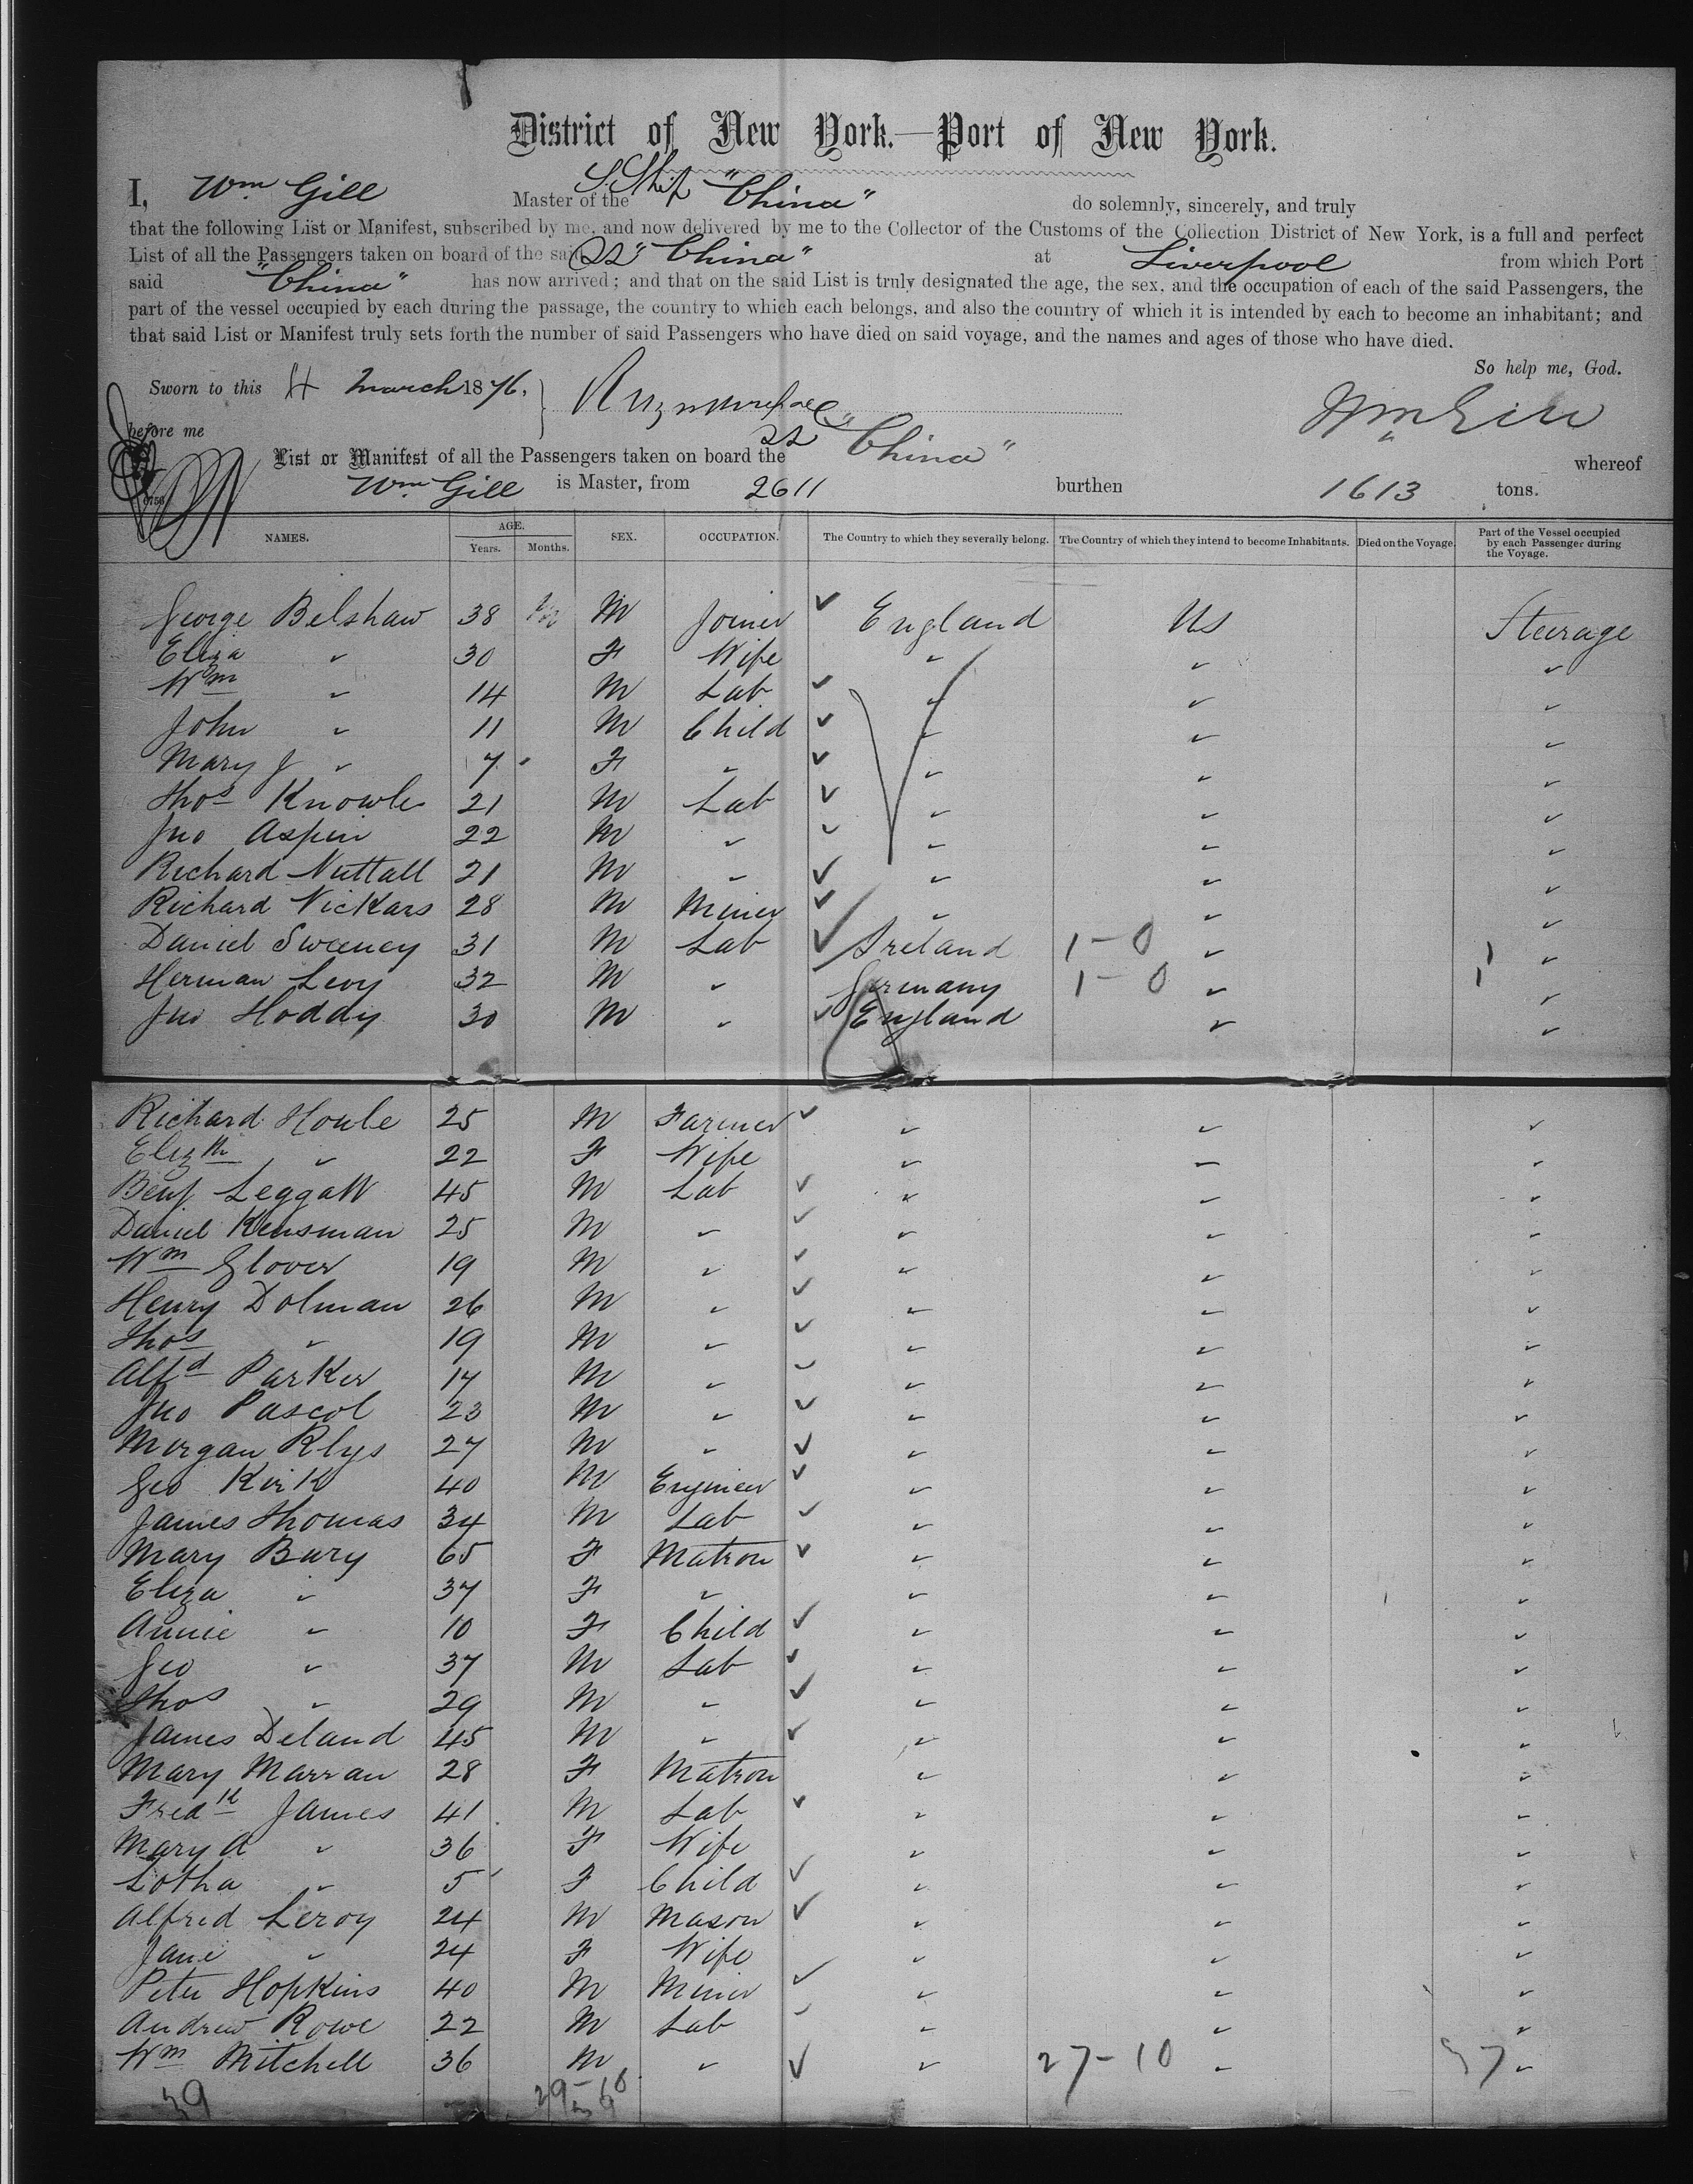 District of New York.—Port of New York.
I, Wm Gill Master of the S.Ship "China" do solemnly, sincerely, and truly
that the following List or Manifest, subscribed by me, and now delivered by me to the Collector of the Customs of the Collection District of New York, is a full and perfect
List of all the Passengers taken on board of the said SS "China" at Liverpool from which Port
said "China" has now arrived; and that on the said List is truly designated the age, the sex, and the occupation of each of the said Passengers, the
part of the vessel occupied by each during the passage, the country to which each belongs, and also the country of which it is intended by each to become an inhabitant; and
that said List or Manifest truly sets forth the number of said Passengers who have died on said voyage, and the names and ages of those who have died.
So help me, God.
Sworn to this 4 March 1876.
Wm Gill
before me
List or Manifest of all the Passengers taken on board the SS "China" whereof
Wm Gill is Master, from 2611 burthen 1613 tons.
NAMES. AGE. Years. Months. SEX. OCCUPATION. The Country to which they severally belong. The Country of which they intend to become Inhabitants. Died on the Voyage. Part of the Vessel occupied by each Passenger during the Voyage.
George Belshaw 38 M Joiner ✓ England US Steerage
Eliza " 30 F Wife " " "
Wm " 14 M Lab ✓ " " "
John " 11 M Child ✓ " " "
Mary J " 7 F " ✓ " " "
Thos Knowle 21 M Lab ✓ " " "
Jno Aspin 22 M " ✓ " " "
Richard Nuttall 21 M " ✓ " " "
Richard Vickars 28 M Miner ✓ " " "
Daniel Sweeney 31 M Lab ✓ Ireland 1-0 " 1 "
Herman Levy 32 M " Germany 1-0 " 1 "
Jno Hoddy 30 M " ✓ England " "
Richard Houle 25 M Farmer ✓ " " "
Elizth " 22 F Wife " " "
Benj Leggatt 45 M Lab ✓ " " "
Daniel Kinsman 25 M " ✓ " " "
Wm Glover 19 M " ✓ " " "
Henry Dolman 26 M " ✓ " " "
Thos " 19 M " ✓ " " "
Alfd Parker 17 M " ✓ " " "
Jno Pascol 23 M " ✓ " " "
Morgan Rhys 27 M " ✓ " " "
Geo Kirk 40 M Engineer ✓ " " "
James Thomas 34 M Lab ✓ " " "
Mary Bury 65 F Matron ✓ " " "
Eliza " 37 F " " " "
Annie " 10 F Child ✓ " " "
Geo " 37 M Lab ✓ " " "
Thos " 29 M " ✓ " " "
James Deland 45 M " ✓ " " "
Mary Marran 28 F Matron " " "
Fredk James 41 M Lab ✓ " " "
Mary A " 36 F Wife " " "
Lotha " 5 F Child ✓ " " "
Alfred Leroy 24 M Mason ✓ " " "
Jane " 24 F Wife " " "
Peter Hopkins 40 M Miner ✓ " " "
Andrew Rowe 22 M Lab ✓ " " "
Wm Mitchell 36 M " ✓ " 27-10 " 37 "
39 29-10
39